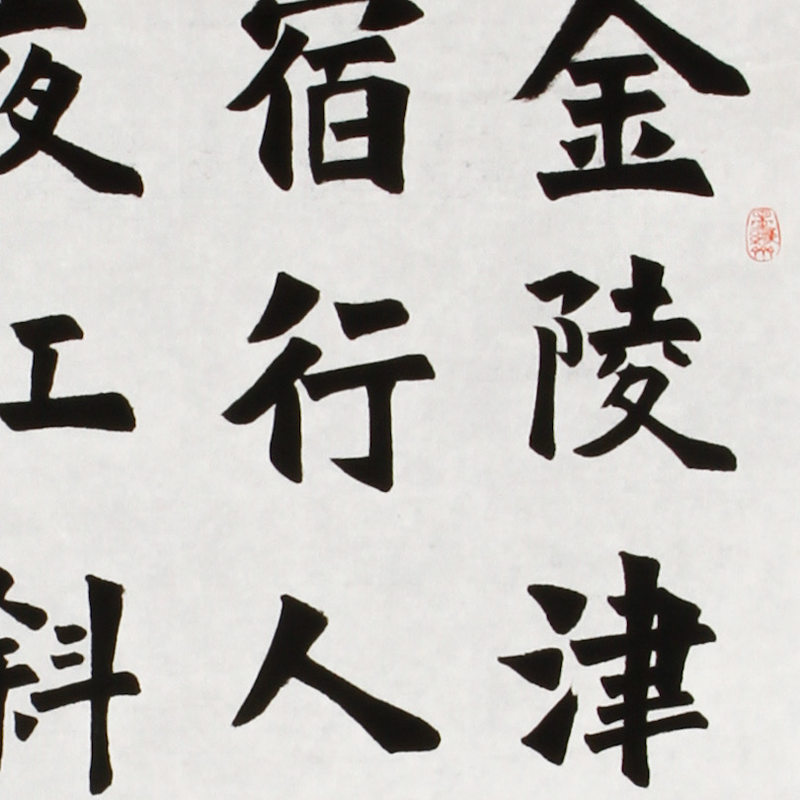 金陵津
宿行人
夜江斜